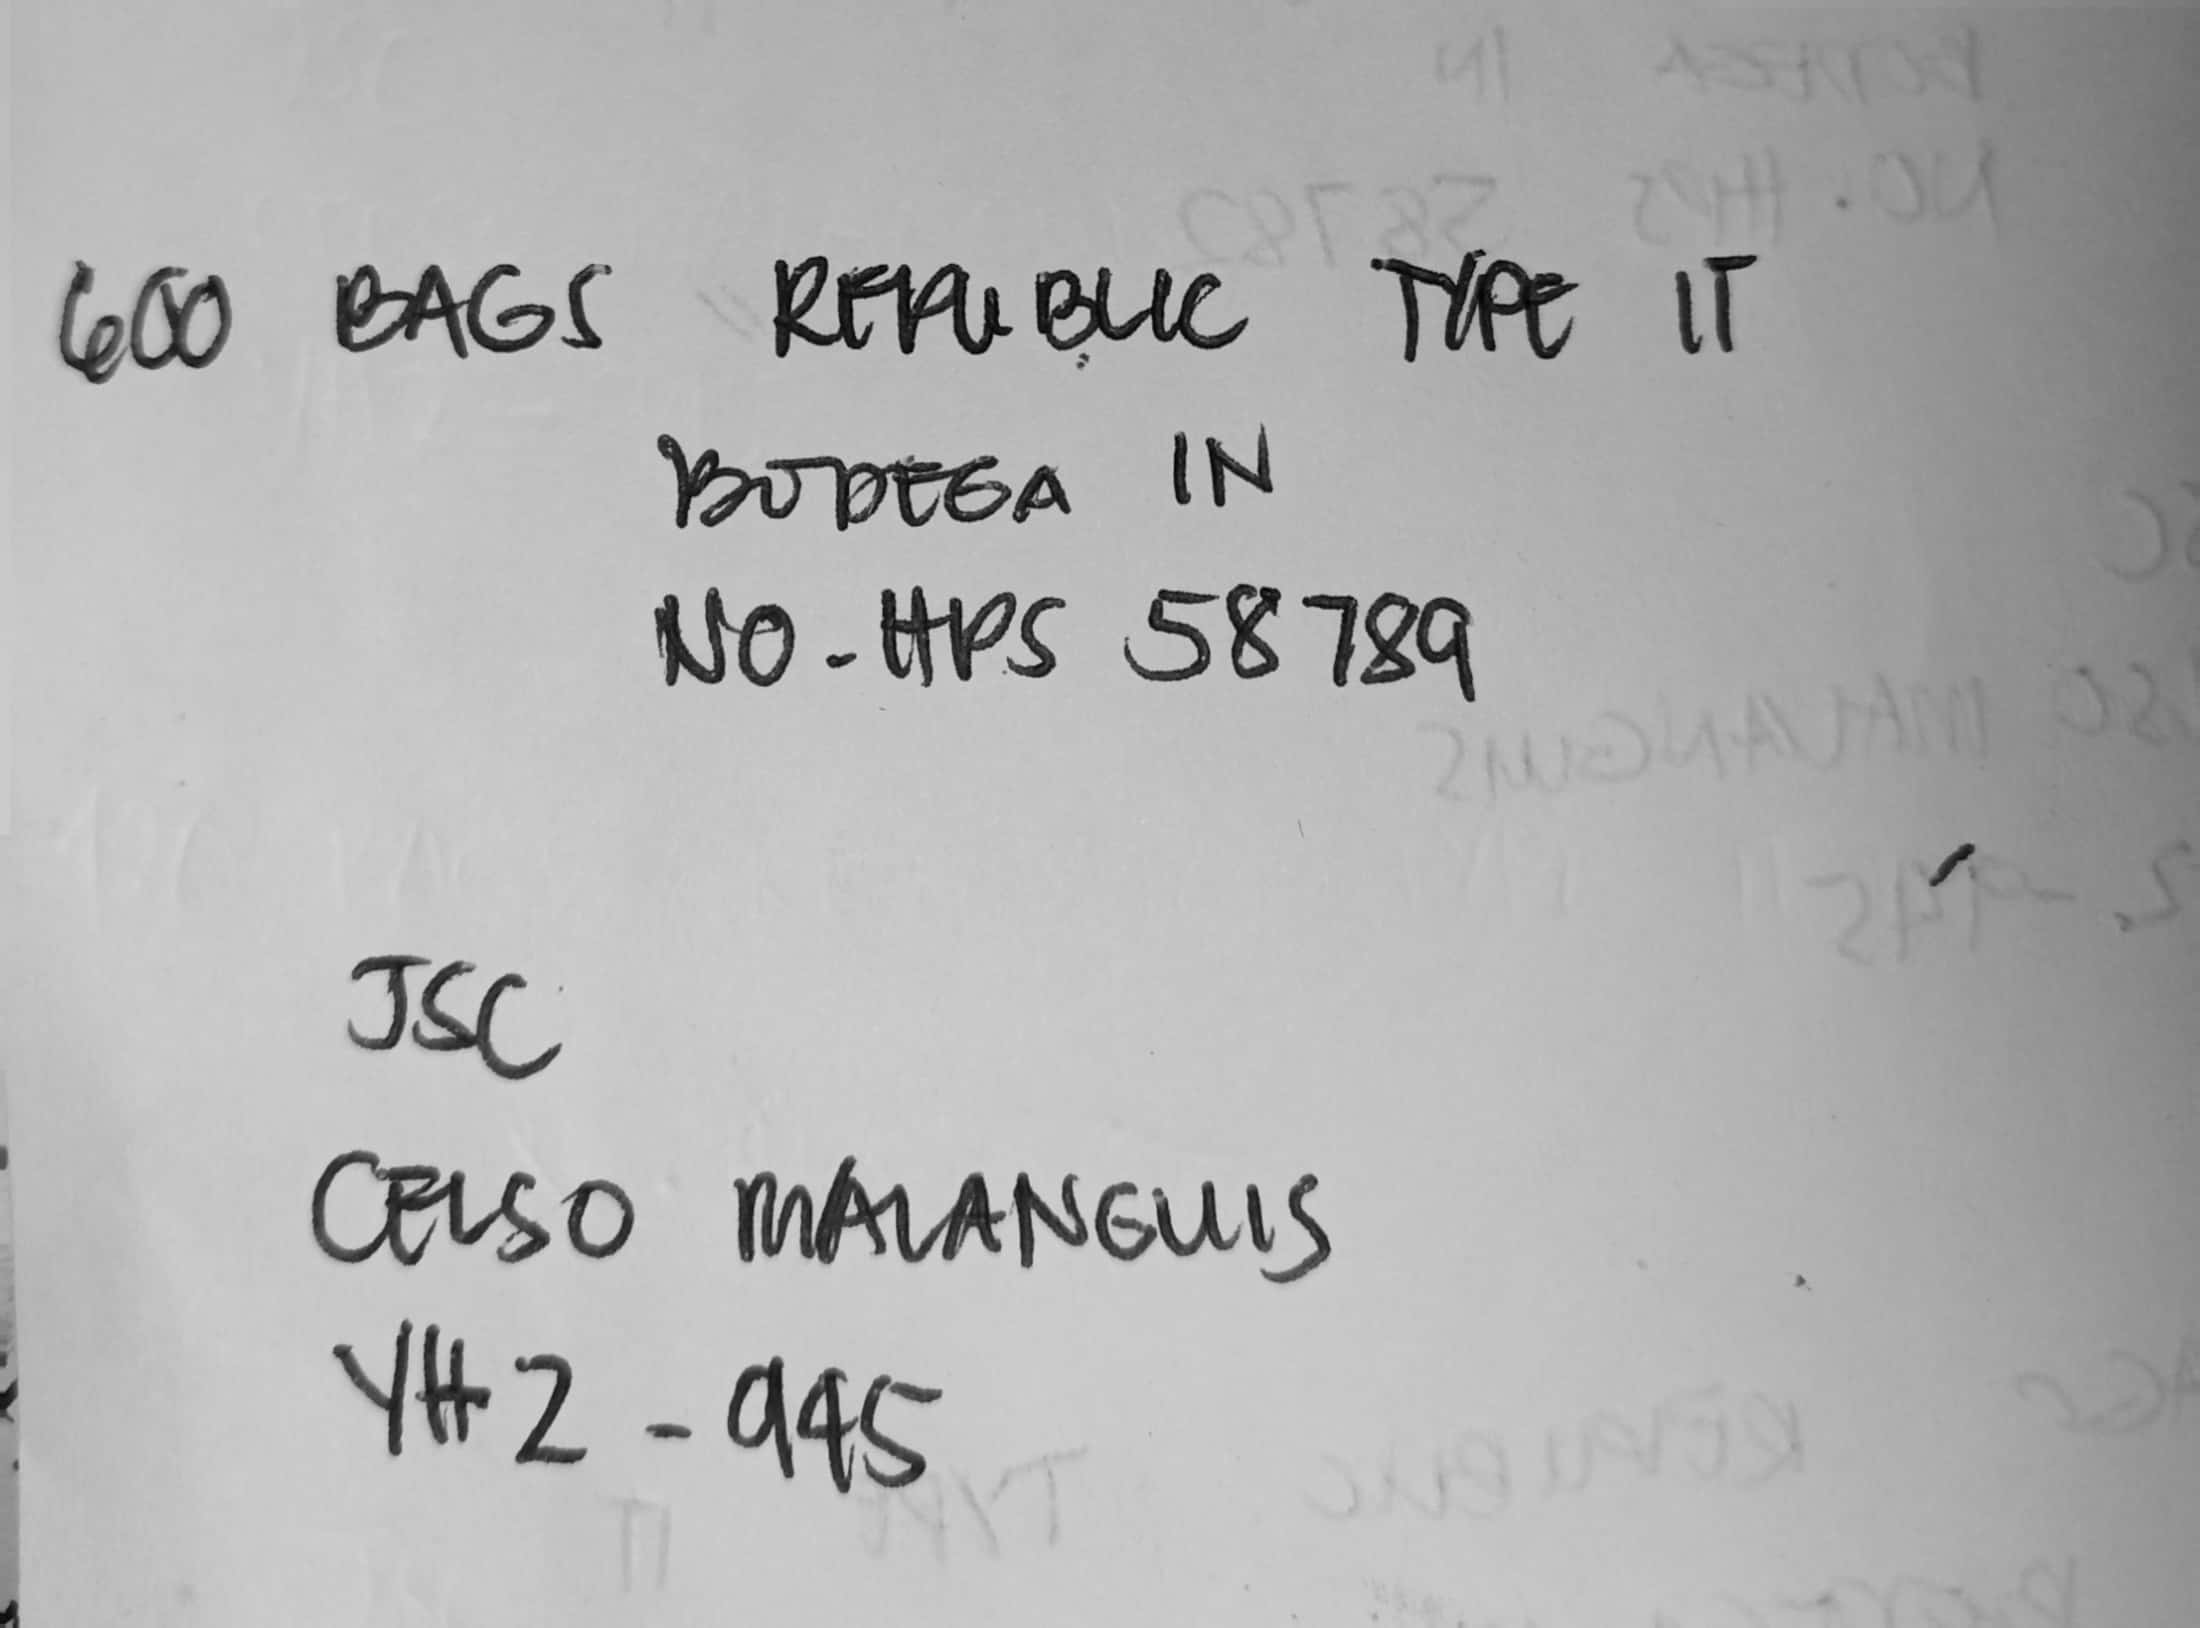 600 BAGS REPUBLIC TYPE IT
BODEGA IN
NO-HPS 58789
JSC
CELSO MALANGUIS
YHZ-945